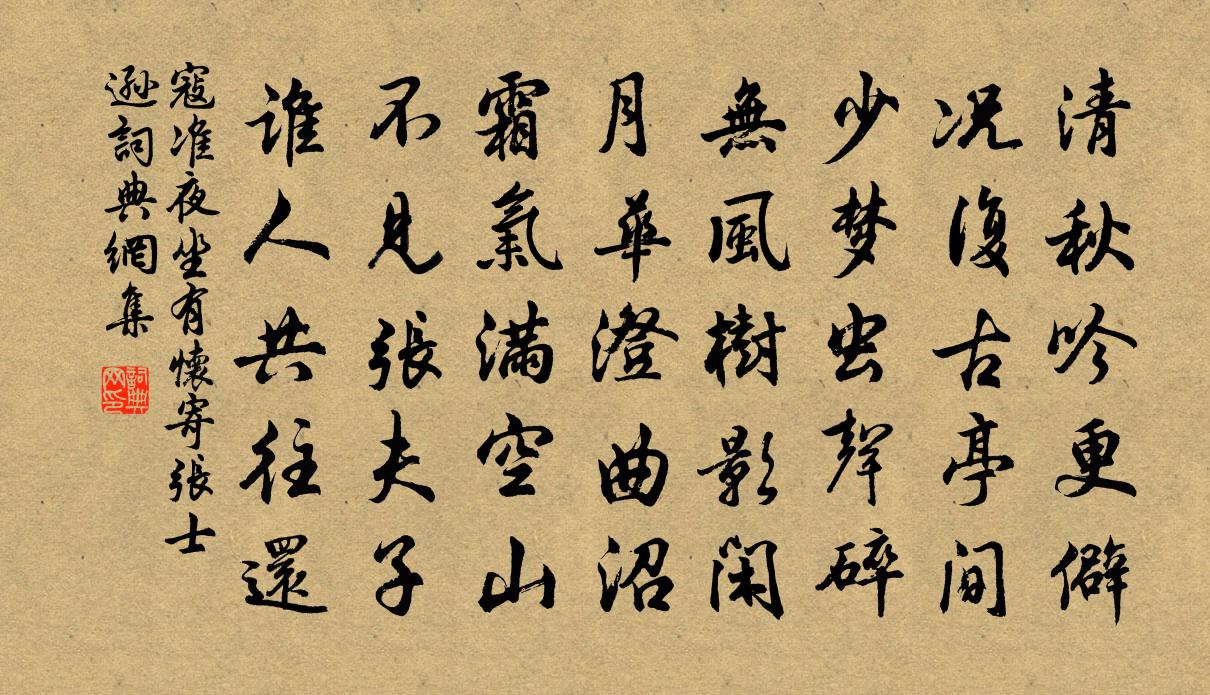 清秋吟更僻
况復古亭間
少梦虫聲碎
無風樹影閑
月華澄曲沼
霜氣滿空山
不見張夫子
誰人共往還
寇准夜坐有懷寄張士
遜詞典網集
詞典
网印